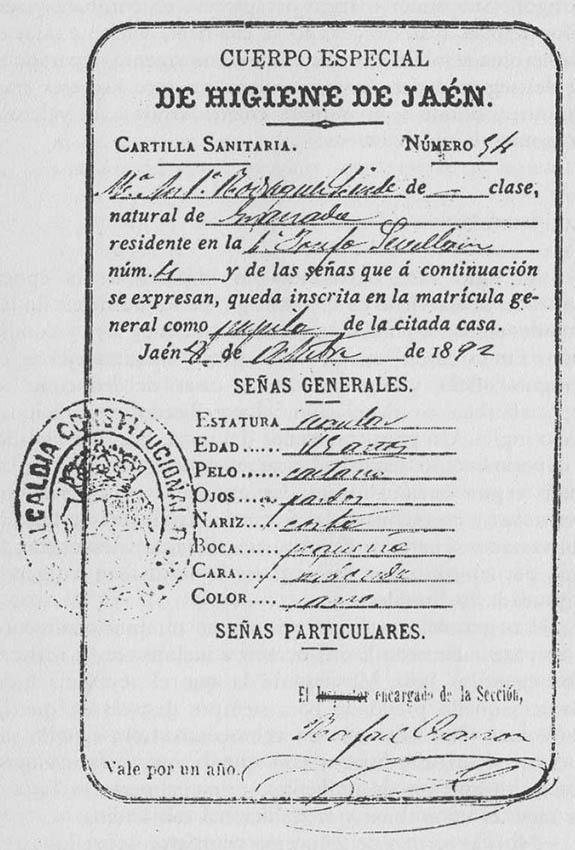 CUERPO ESPECIAL
DE HIGIENE DE JAÉN.
CARTILLA SANITARIA. NÚMERO 54
Mª de clase,
natural de Granada
residente en la
núm. 4 y de las señas que á continuación
se expresan, queda inscrita en la matrícula ge-
neral como pupila de la citada casa.
Jaén 8 de Octubre de 1892
SEÑAS GENERALES.
ESTATURA regular
EDAD
PELO castaño
OJOS pardos
NARIZ corta
BOCA pequeña
CARA redonda
COLOR sano
SEÑAS PARTICULARES.
El encargado de la Sección,
Rafael
Vale por un año.
ALCALDIA CONSTITUCIONAL